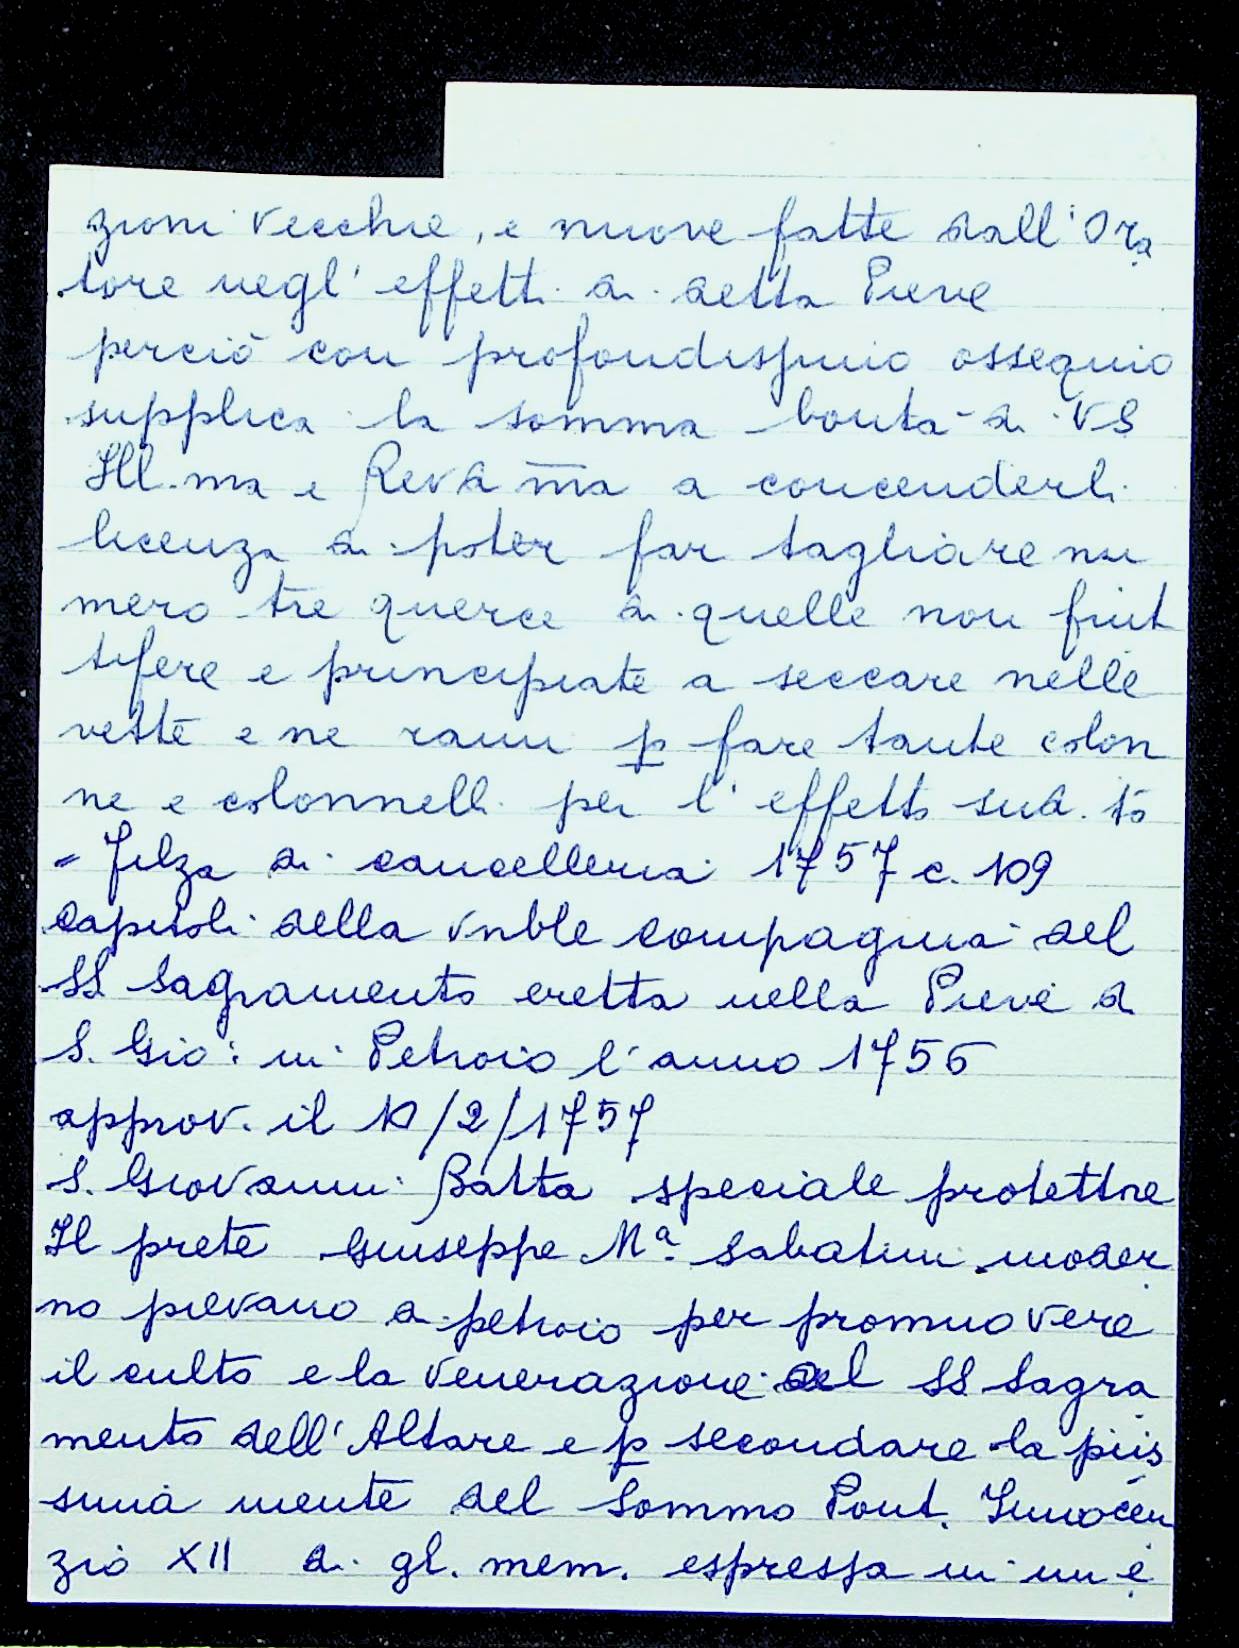 zioni vecchie, e nuove fatte dall'Ora
tore negl'effetti di detta Pieve
perciò con profondissimo ossequio
supplica la somma bontà di VS
Ill.ma e Revd m̄a a concenderli
licenza di poter far tagliare nu
mero tre querce di quelle non frut
tifere e principiate a seccare nelle
vette e ne rami p fare tante colon
ne e colonnelli per l'effetto sud.to
= Filza di cancelleria 1757 c. 109
Capitoli della vnble compagnia del
SS Sagramento eretta nella Pieve di
S. Gio: in Petroio l'anno 1756
approv. il 10/2/1757
S. Giovanni Batta speciale protettore
Il prete Giuseppe Mª Sabatini moder
no pievano di petroio per promuovere
il culto e la venerazione del SS Sagra
mento dell'Altare e p secondare la piis
sima mente del Sommo Pont. Innocen
zio XII di gl. mem. espressa in un e